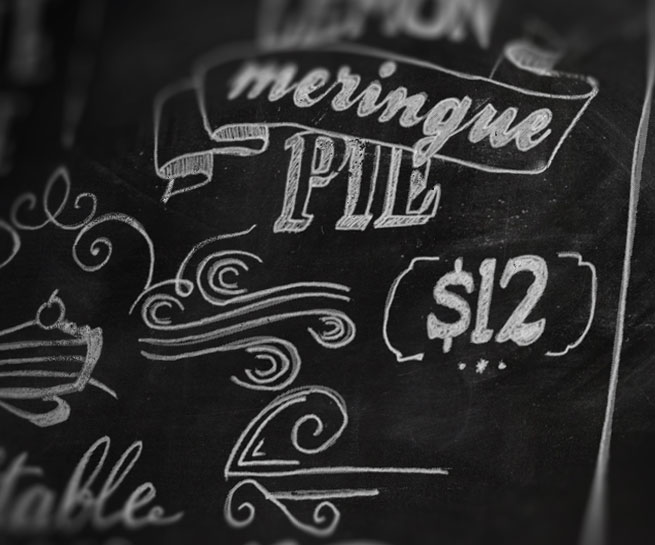 LEMON
meringue
PIE
$12
table